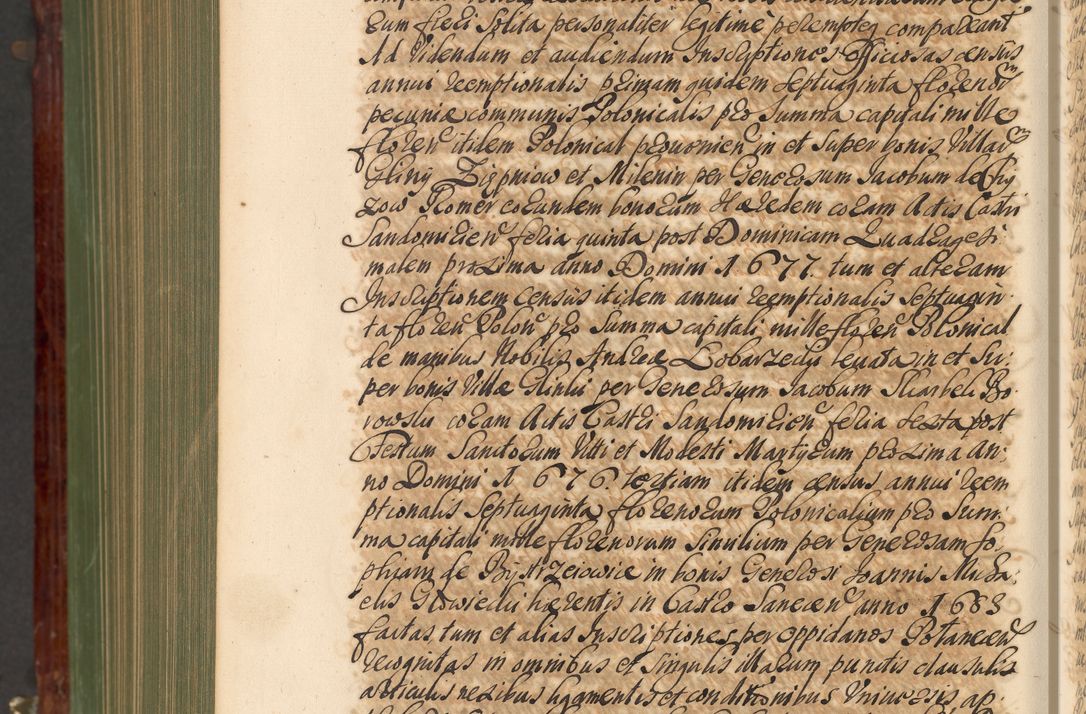 Eum fieri solita personaliter legitime peremptorie compareant
Ad Videndum et audiendum Inscriptiones Officiosas census
annui reemptionalis primam quidem septuaginta florenor
pecuniæ communis Polonicalis pro Summa capitali mille
floren itidem Polonical provenien in et super bonis Villar
Gliny Zizpniow et Milenin per Generosum Jacobum de Chy
zow Romer eorundem bonorum Hæredem coram Actis Castri
Sandomirien feria quinta post Dominicam Quadragesi
malem proxima anno Domini 1677. tum et alteram
Inscriptionem census itidem annui reemptionalis septuagin
ta floren Polon pro Summa capitali mille floren Polonical
de manibus Nobilis Andreæ Lobarzedy levata in et su
per bonis Villæ Glinki per Generosum Jacobum Skarbek Bo
rowski coram Actis Castri Sandomirien feria sexta post
Festum Sanctorum Viti et Modesti Martyrum proxima an
no Domini 1676. tertiam itidem census annui reem
ptionalis septuaginta florenorum Polonicalium pro Sum
ma capitali mille florenorum similium per Generosam So
phiam de Bystrzeiowice in bonis Generosi Joannis Micha
elis Glowiecki hærentis in Castro Sanecen anno 1683
factas, tum et alias Inscriptiones per oppidanos Potanecen
recognitas in omnibus et singulis illarum punctis clausulis
articulis nexibus ligamentis et conditionibus Universis ap